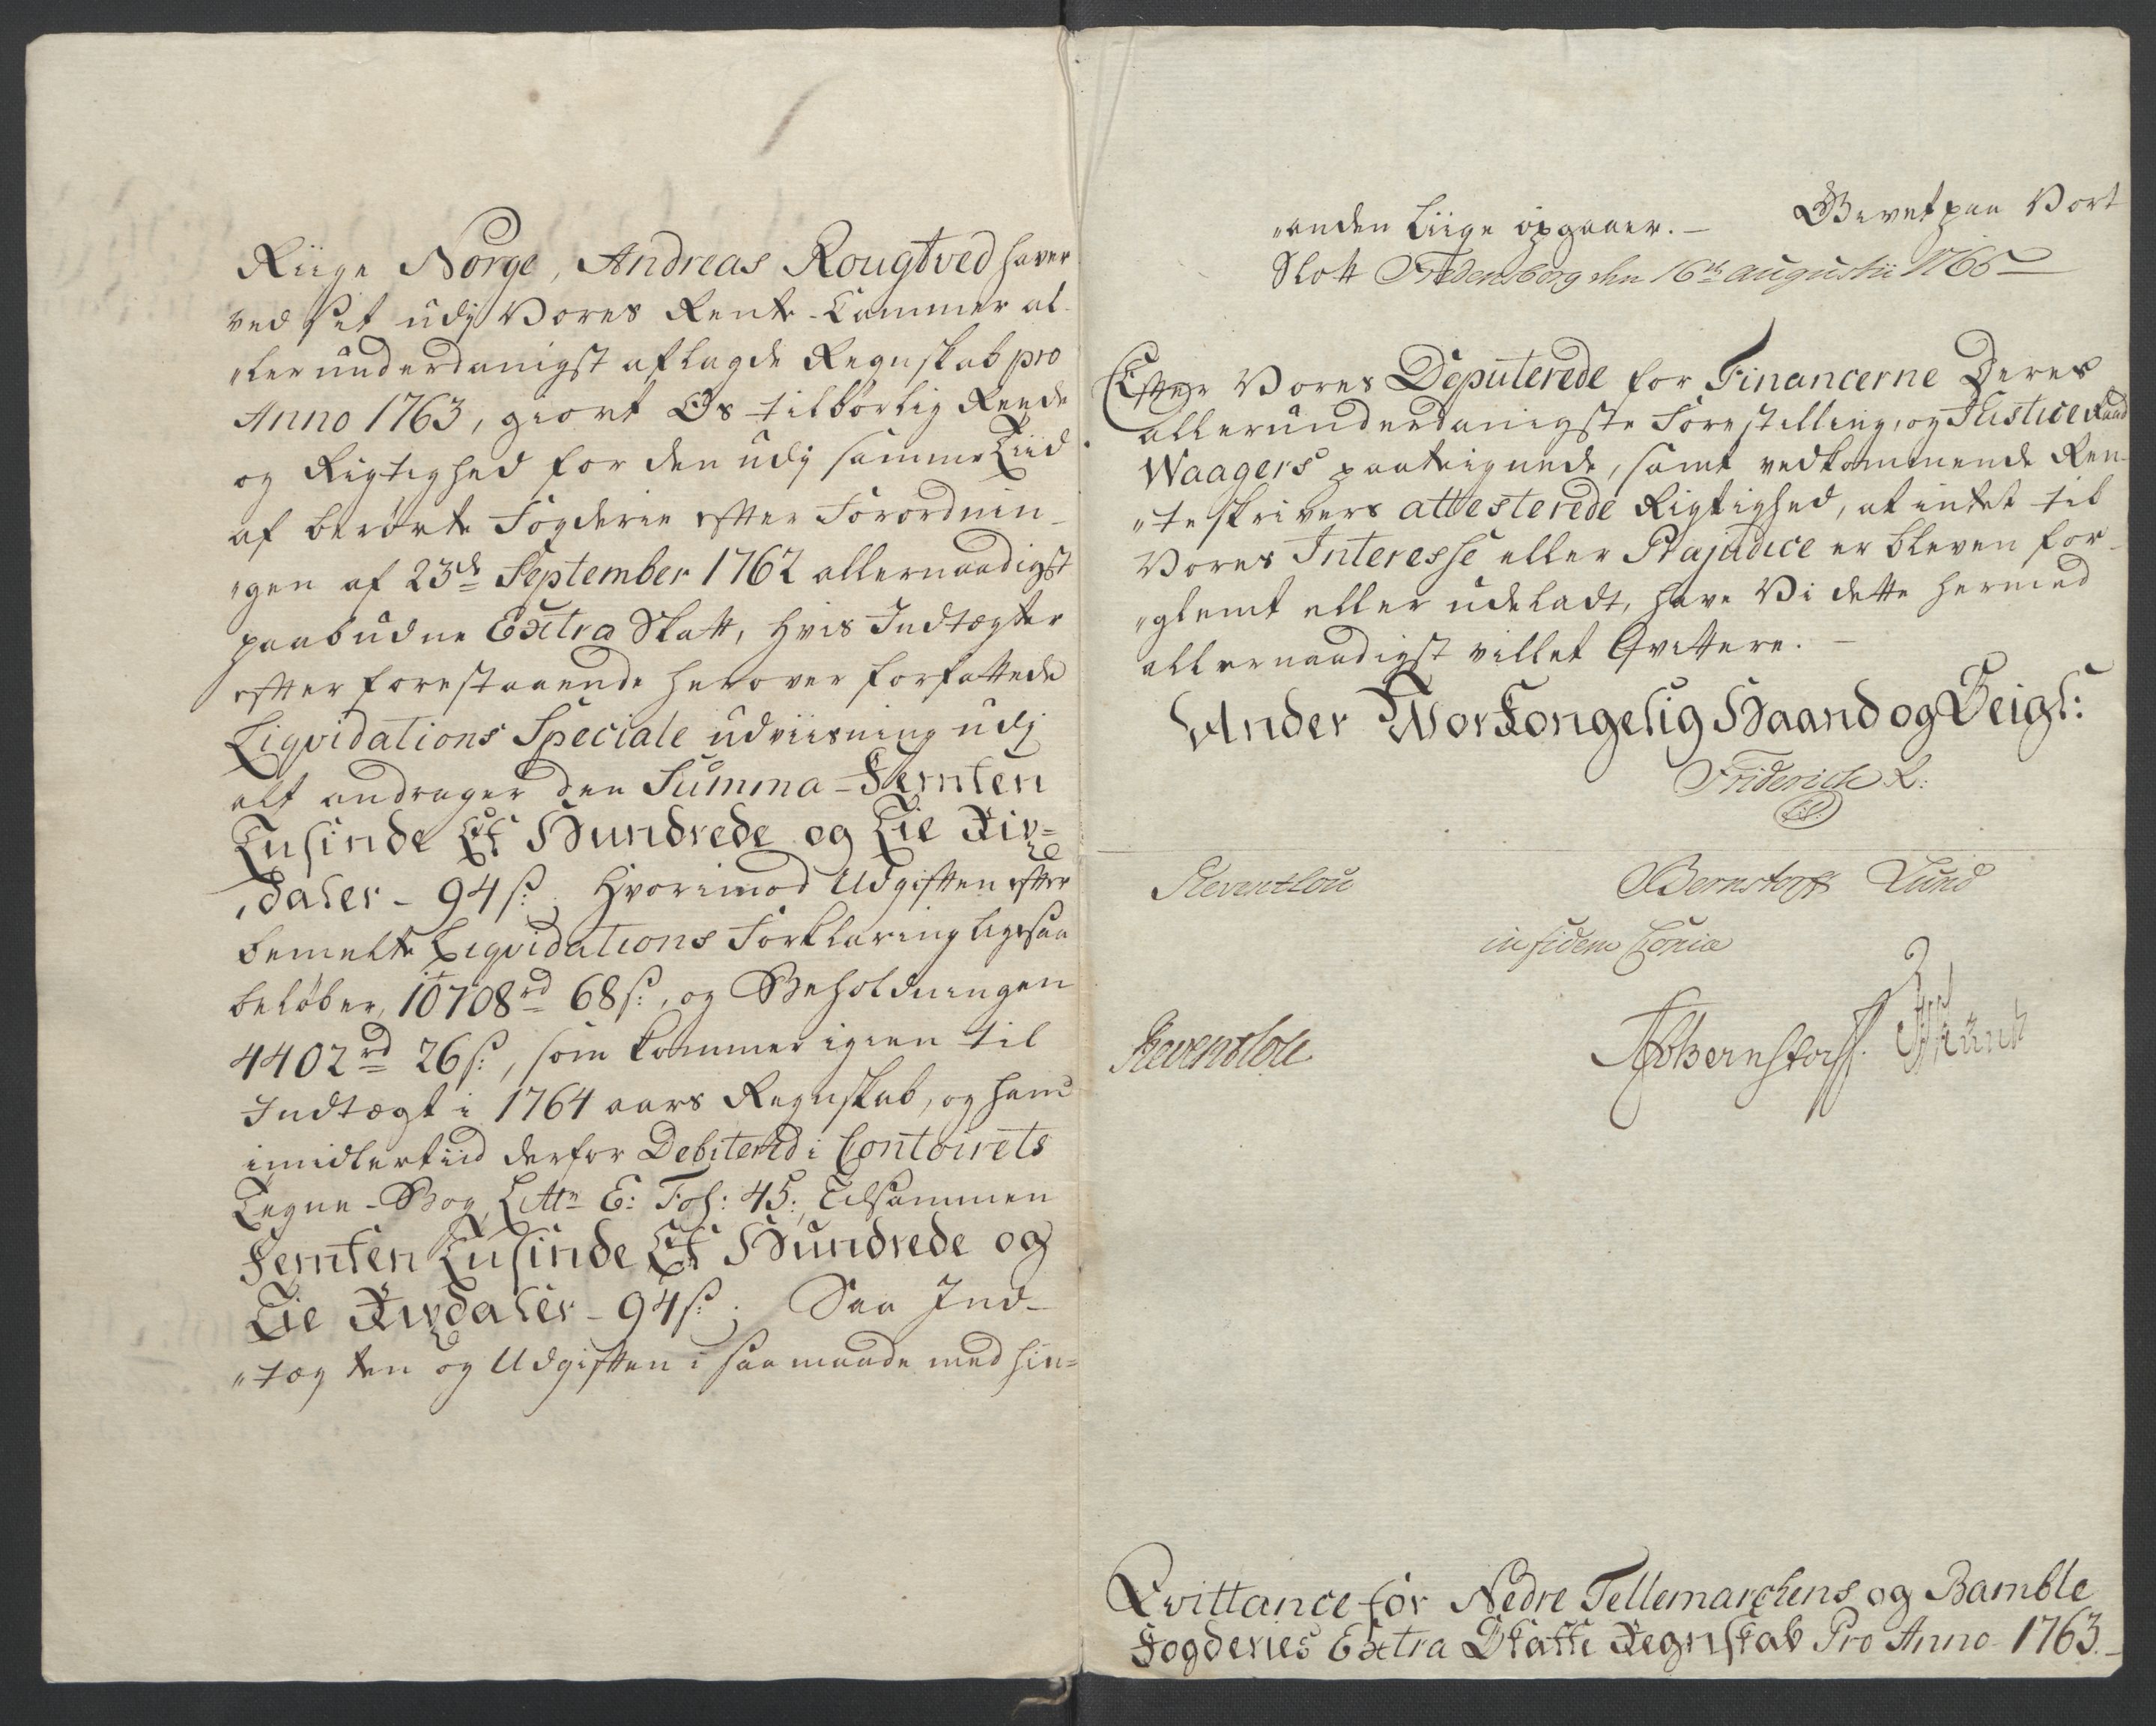 Riige Norge, Andreas Rougtved haver
ved sit udj Vores Rente-Cammer al-
„lerunderdanigst aflagde Regnskab pro
Anno 1763, giort Os tilbörlig Reede
og Rigtighed for den udj samme Tiid
af berörte Fogderie efter Forordnin-
„gen af 23de September 1762 allernaadigst
paabudne Extra Skatt, hvis Indtægter
efter forestaaende herover forfattede
Liqvidations Speciale udviisning udj
alt andrager den Summa - Femten
Tusinde Et Hundrede og Tie Rix-
„daler - 94 s:, hvorimod Udgiften efter
bemelte Liqvidations Forklaring ligesaa
belöber, 10708 rd 68 s:, og Beholdningen
4402 rd 26 s:, som kommer igien til
Indtægt i 1764 aars Regnskab, og hand
imidlertiid derfor Debiteret i Contoirets
Tegne-Bog Littr E: Fol: 45:, Tilsammen
Femten Tusinde Et Hundrede og
Tie Rixdaler - 94 s:; Saa Ind-
„tægten og Udgiften i saa maade med hin-
„anden liige opgaaer. — Givet paa Vort
Slott Fredensborg den 16de augustii 1765
Efter Vores Deputerede for Financerne Deres
allerunderdanigste Forestilling, og Justice Raad
Waagers paateignede, samt vedkommende Ren-
„teskrivers attesterede Rigtighed, at intet til
Vores Interesse eller Præjudice er bleven for-
„glemt eller udeladt, have Vi dette hermed
allernaadigst villet Qvittere. —
Under Vor Kongelig Haand og Zeigl:
Friderich R:
Reventlou Bernstorff Lund
in fidem Copiæ
Reventlou Bernstorff.
Qvittance for Nedre Tellemarchens og Bamble
Fogderies Extra Skatte Regnskab Pro Anno 1763.